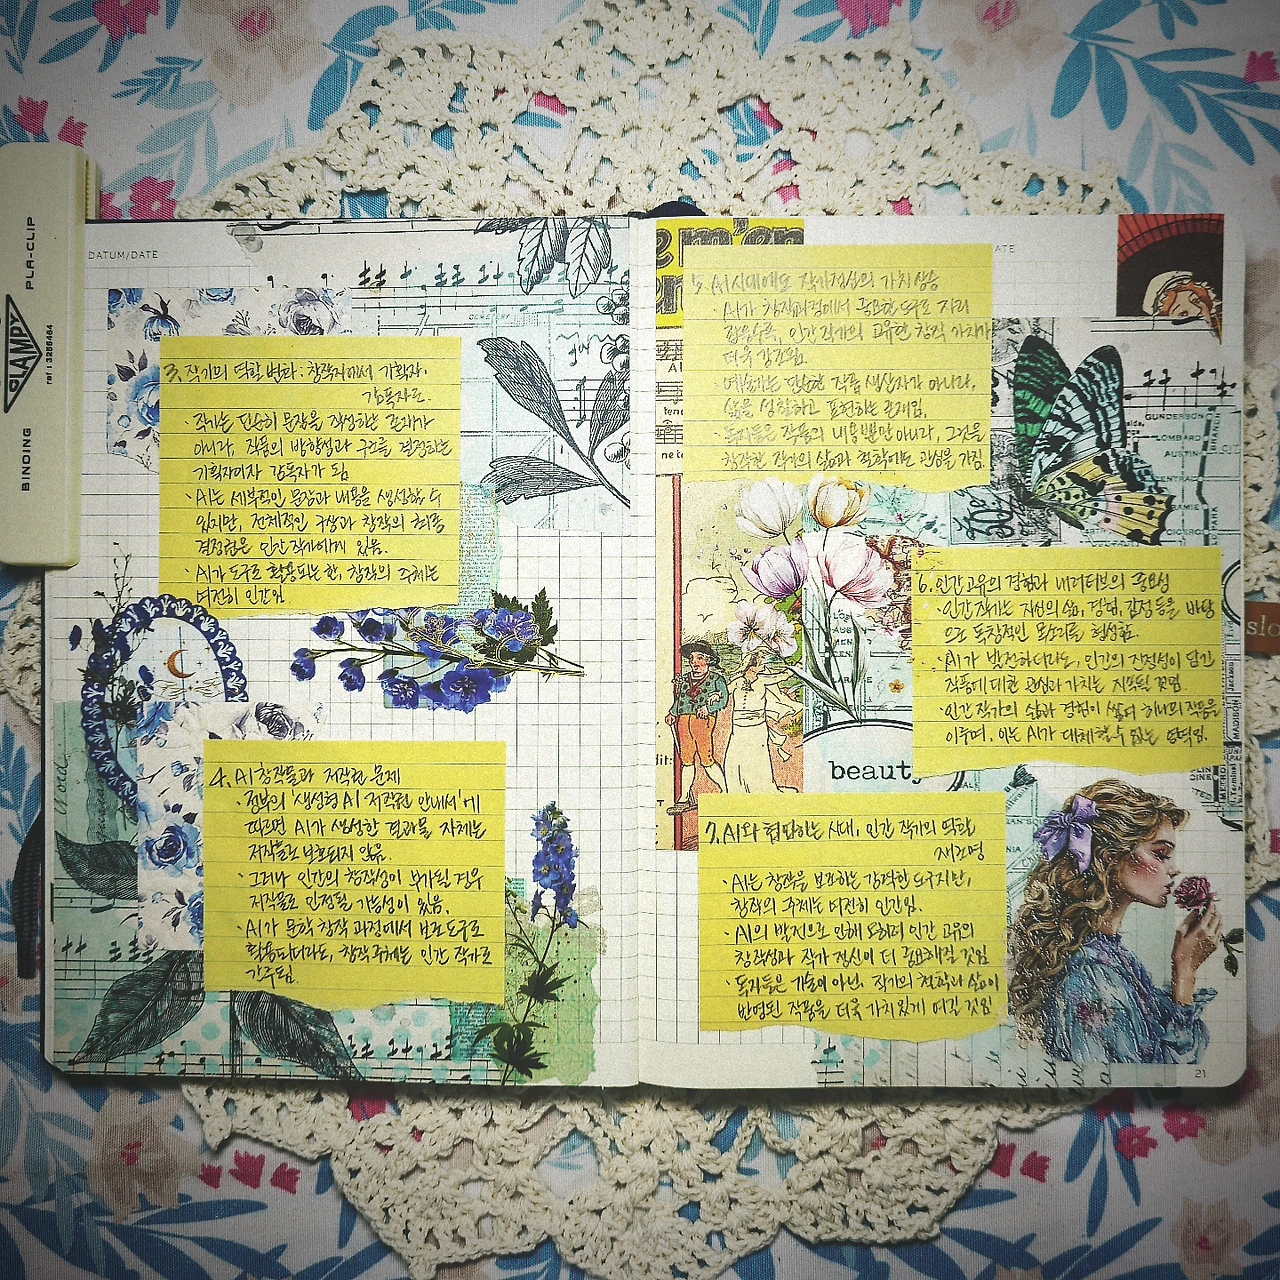 PLA-CLIP
CLAMPY
ref 13256464
BINDING
DATUM/DATE
3. 작가의 역할 변화: 창작자에서 기획자·
감독자로.
· 작가는 단순히 문장을 작성하는 존재가
아니라, 작품의 방향성과 구조를 결정하는
기획자이자 감독자가 됨
· AI는 세부적인 문장과 내용을 생성할 수
있지만, 전체적인 구상과 창작의 최종
결정권은 인간 작가에게 있음.
· AI가 도구로 활용되는 한, 창작의 주체는
여전히 인간임
4. AI 창작물과 저작권 문제
· 정부의 '생성형 AI 저작권 안내서'에
따르면 AI가 생성한 결과물 자체는
저작물로 보호되지 않음.
· 그러나 인간의 창작성이 부가될 경우
저작물로 인정될 가능성이 있음.
· AI가 문학 창작 과정에서 보조 도구로
활용되더라도, 창작 주체는 인간 작가로
간주됨.
e m'en
ATE
5. AI 시대에도 작가정신의 가치 상승
· AI가 창작과정에서 중요한 도구로 자리
잡을수록, 인간 작가의 고유한 창작 가치가
더욱 강조됨.
· 예술가는 단순한 작품 생산자가 아니라,
삶을 성찰하고 표현하는 존재임.
· 독자들은 작품의 내용뿐만 아니라, 그것을
창작한 작가의 삶과 철학에도 관심을 가짐.
GUNDERSON
LOMBARD
AUSTIN
6. 인간 고유의 경험과 내러티브의 중요성
· 인간 작가는 자신의 삶, 경험, 감정 등을 바탕
으로 독창적인 목소리를 형성함.
· AI가 발전하더라도, 인간의 진정성이 담긴
작품에 대한 관심과 가치는 지속될 것임.
· 인간 작가의 삶과 경험이 쌓여 하나의 작품을
이루며, 이는 AI가 대체할 수 없는 영역임.
slo
MADISON
beauty
7. AI와 협업하는 시대, 인간 작가의 역할
재조명
· AI는 창작을 보조하는 강력한 도구지만,
창작의 주체는 여전히 인간임.
· AI의 발전으로 인해 오히려 인간 고유의
창작성과 작가 정신이 더 중요해질 것임
· 독자들은 기술이 아닌, 작가의 철학과 삶이
반영된 작품을 더욱 가치있게 여길 것임
21